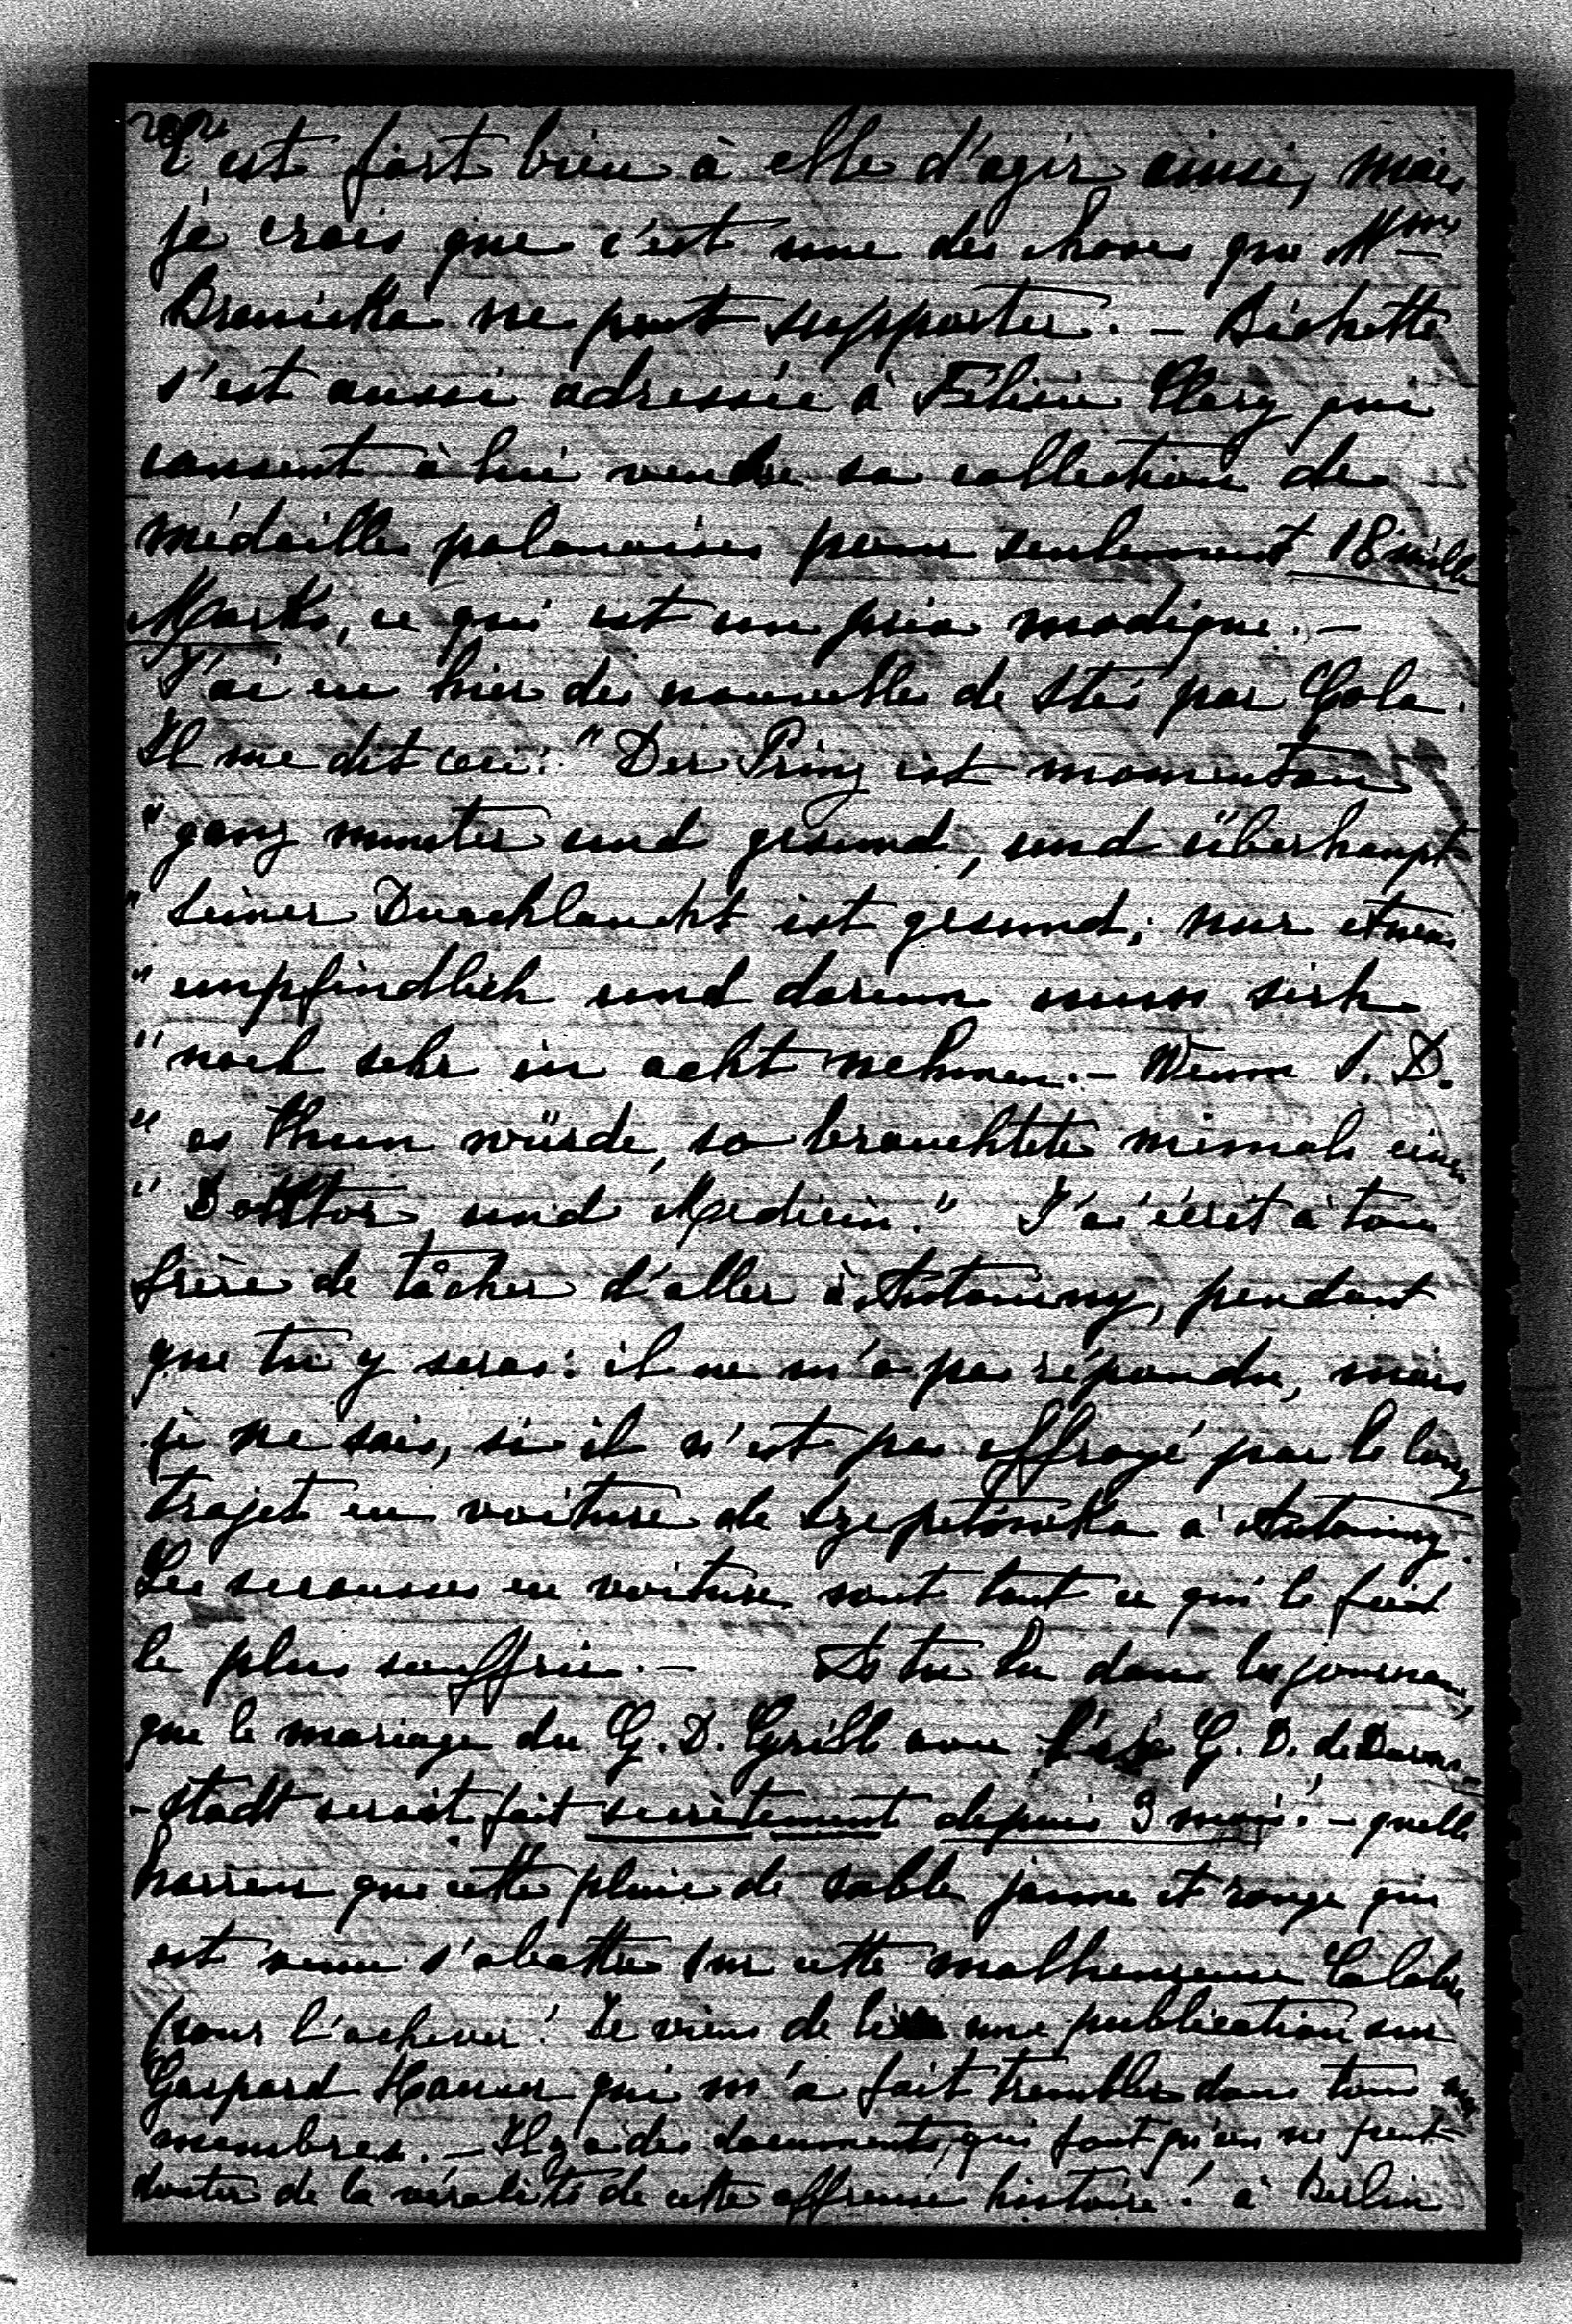 C'est fort bien à elle d'agir ainsi, mais
je crois que c'est une des choses que Mme
Branicka ne peut supporter. – Bichette
s'est aussi adressée à Félicie Clary qui
consent à lui vendre sa collection de
médailles polonaises pour seulement 18 mille
Marks, ce qui est un prix modique. –
J'ai eu hier des nouvelles de Stés par Gola.
Il me dit ceci: "Der Prinz ist momentan
"ganz munter und gesund, und überhaupt
"Seiner Durchlaucht ist gesund; nur etwas
"empfindlich und darum muss sich
"noch sehr in acht nehmen. – Wenn S. D.
"es thun würde, so brauchtete niemals einen
"Doktor und Medicin." J'ai écrit à ton
frère de tâcher d'aller à Antoniny, pendant
que tu y seras: il ne m'a pas répondu, mais
je ne sais, si il n'est pas effrayé par le long
trajet en voiture de Szepetówka à Antoniny.
Les secousses en voiture sont tout ce qui le fait
le plus souffrir. – As tu lu dans les journaux,
que le mariage du G. D. Cyrille avec l'ex G. D. de Darm-
-stadt serait fait secrètement depuis 3 mois. – quelle
horreur que cette pluie de sable jaune et rouge qui
est venue s'abattre sur cette malheureuse Calabre
pour l'achever! Je viens de lire une publication sur
Gaspard Hauser qui m'a fait trembler dans tous mes
membres. – Il y a des documents, qui font qu'on ne peut
douter de la véralité de cette affreuse histoire! à Berlin